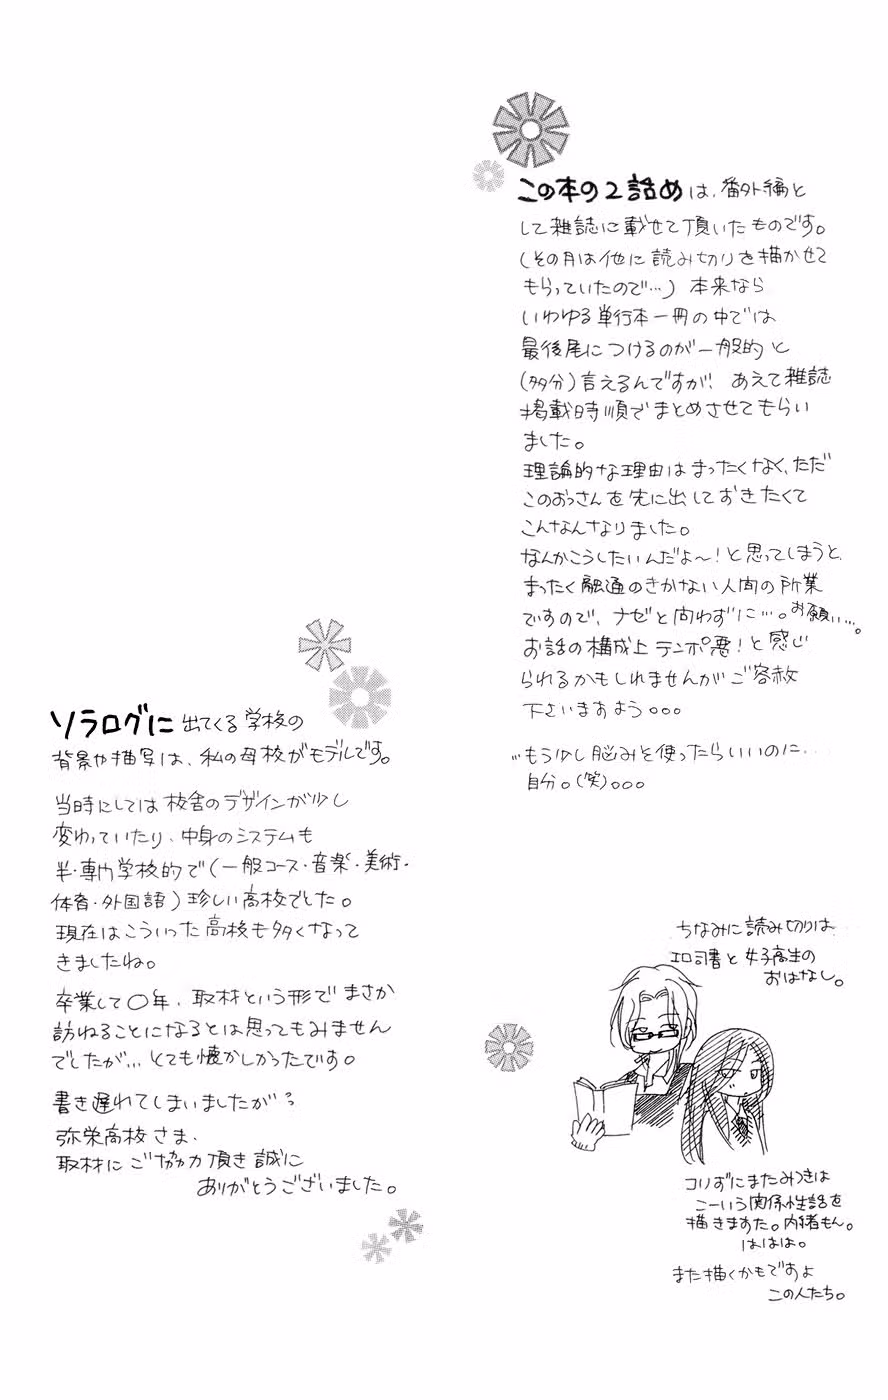 この本の2話めは、番外編と
して雑誌に載せて頂いたものです。
(その月は他に読み切りを描かせて
もらっていたので…) 本来なら
いわゆる単行本一冊の中では
最後尾につけるのが一般的と
(多分)言えるんですが! あえて雑誌
掲載時順でまとめさせてもらい
ました。
理論的な理由はまったくなく、ただ
このおっさんを先に出しておきたくて
こんなんなりました。
なんかこうしたいんだよ〜!と思ってしまうと、
まったく融通のきかない人間の所業
ですので、ナゼと問わずに…。お願い…。
お話の構成上テンポ悪!と感じ
られるかもしれませんがご容赦
下さいますよう。。。
…もう少し脳みを使ったらいいのに…
自分。(笑)。。。
ちなみに読み切りは
エロ司書と女子高生の
おはなし。
コリずにまたみつきは
こーいう関係性話を
描きますた。内緒もん。
ははは。
また描くかもですよ
この人たち。
ソラログに出てくる学校の
背景や描写は、私の母校がモデルです。
当時にしては校舎のデザインが少し
変わっていたり、中身のシステムも
半・専門学校的で(一般コース・音楽・美術・
体育・外国語)珍しい高校でした。
現在はこういった高校も多くなって
きましたね。
卒業して〇年、取材という形でまさか
訪ねることになるとは思ってもみません
でしたが…とても懐かしかったです。
書き遅れてしまいましたが
弥栄高校さま、
取材にご協力頂き誠に
ありがとうございました。